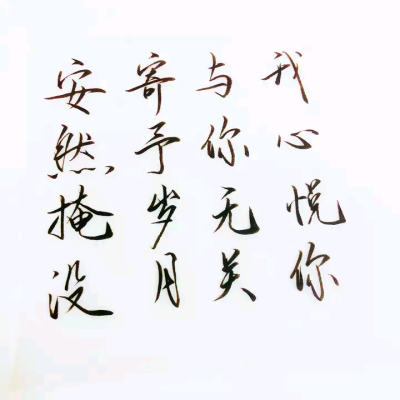 我心悦你
与你无关
寄予岁月
安然掩没